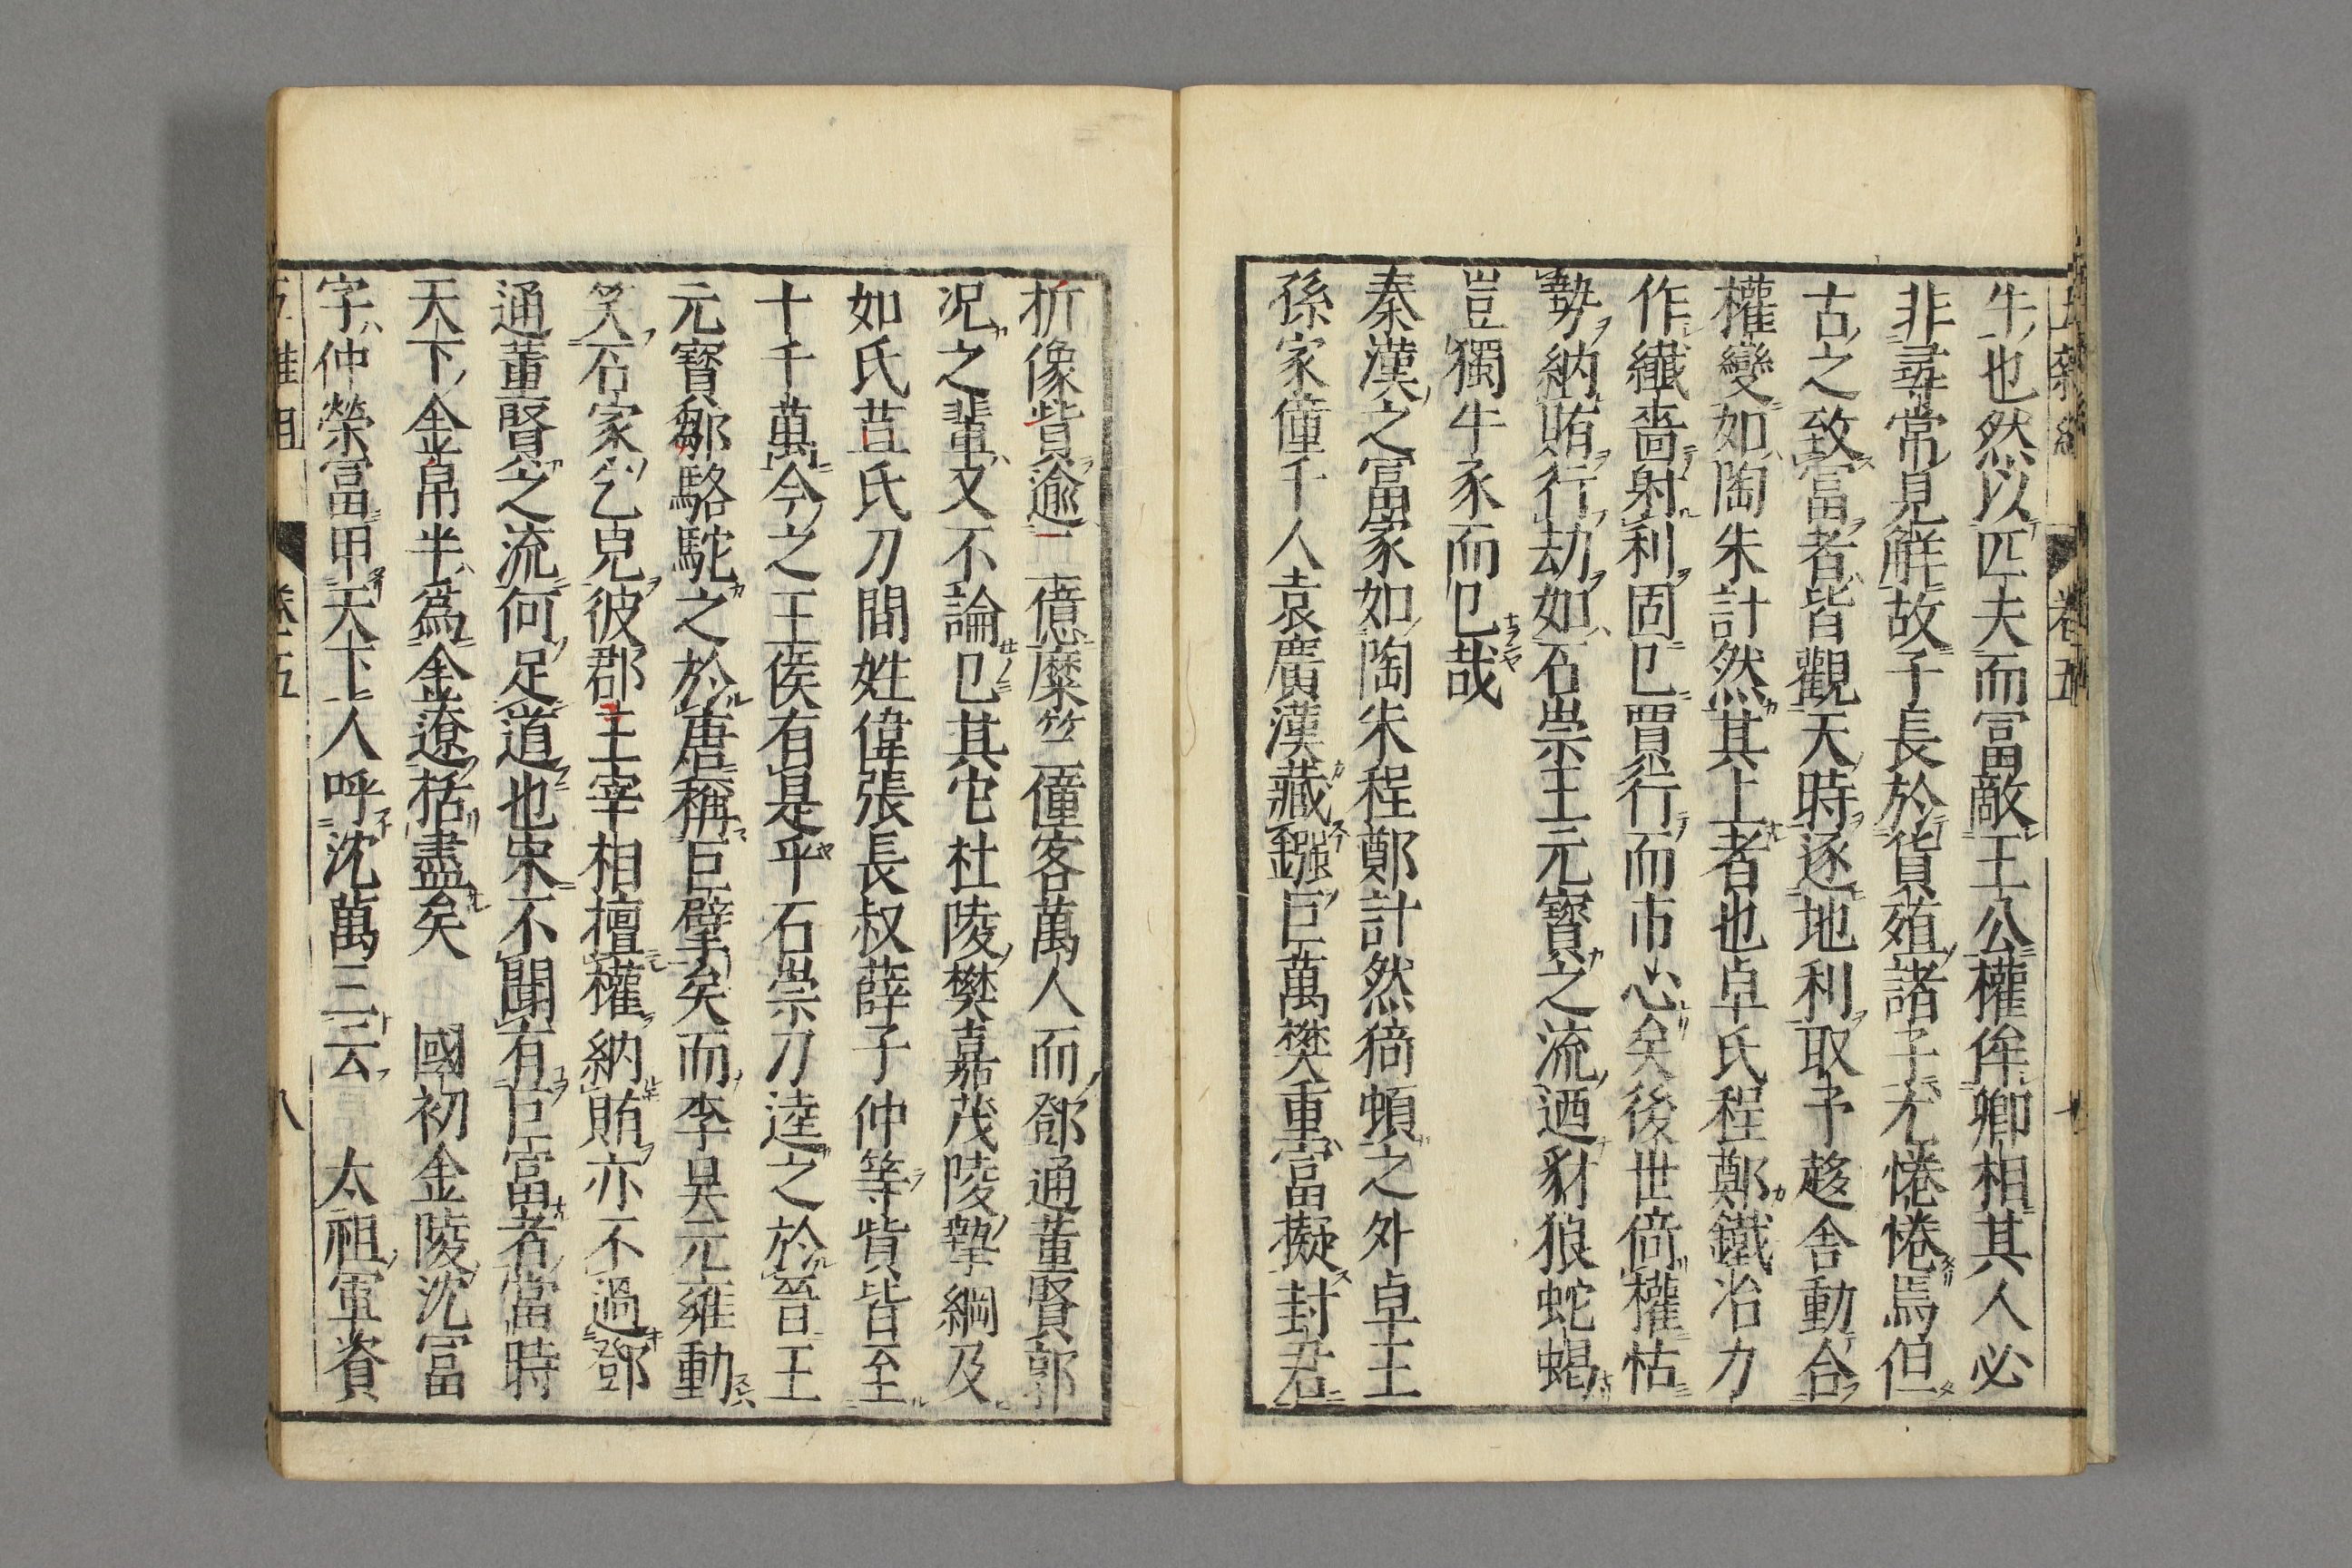 牛也然以匹夫而冨敵王公權侔卿相其人必
非尋常見解故子長於貨殖諸子尤惓惓焉但
古之致富者皆觀天時逐地利取予趍舍動合
權變如陶朱計然其上者也卓氏程鄭鐵冶力
作纖嗇射利固已賈行而市心矣後世倚權怙
勢納賄行劫如石崇王元寳之流迺豺狼蛇蝎
豈獨牛豕而已哉
秦漢之冨家如陶朱程鄭計然猗頓之外卓王
孫家僮千人袁廣漢藏鏹巨萬樊重富擬封君
折像貲逾二億糜竺僮客萬人而鄧通董賢郭
况之輩又不論已其它杜陵樊嘉茂陵摯綱及
如氏苴氏刀間姓偉張長叔薛子仲等貲皆至
十千萬今之王侯有是乎石崇刀逵之於晉王
元寳鄒駱駝之於唐稱巨擘矣而李昊元雍動
笑石家乞兒彼郡主宰相擅權納賄亦不過鄧
通董賢之流何足道也宋不聞有巨富者當時
天下金帛半為金遼括盡矣　國初金陵沈冨
字仲榮冨甲天下人呼沈萬三云　太祖軍資
卷五
八